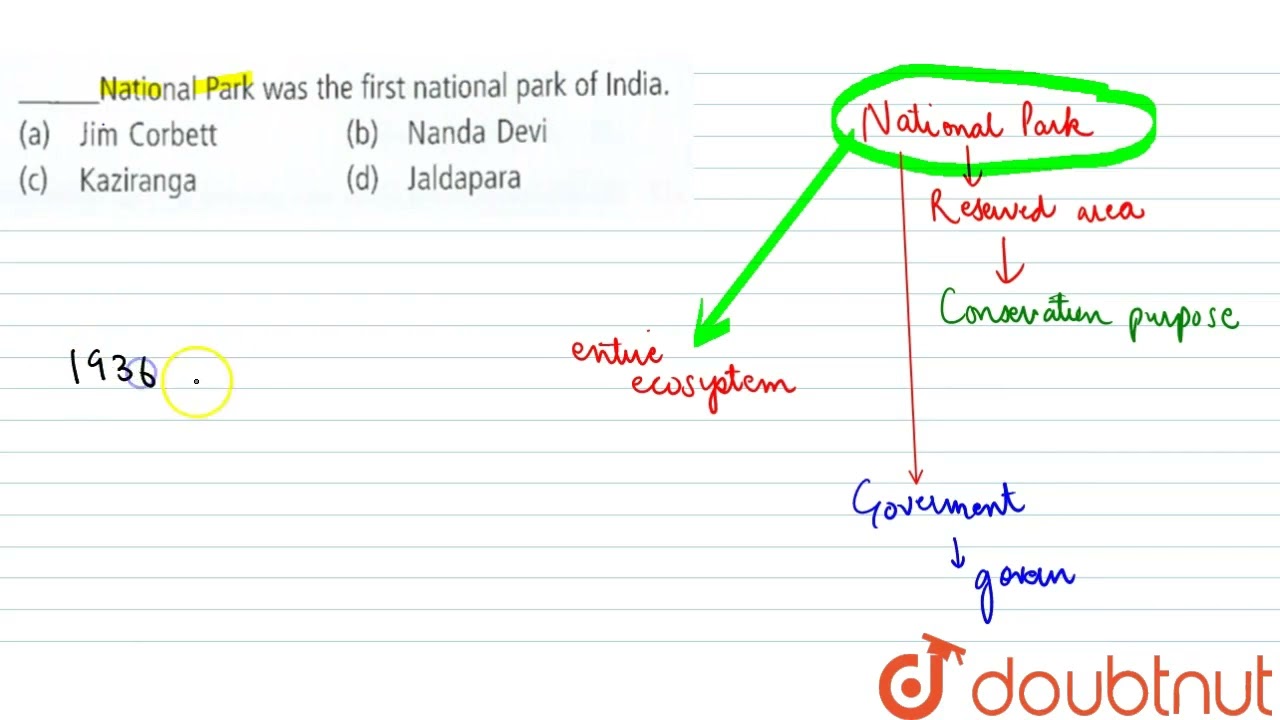 ______National Park was the first national park of India.
(a) Jim Corbett (b) Nanda Devi
(c) Kaziranga (d) Jaldapara
National Park
Reserved area
Conservation purpose
1936
entire
ecosystem
Goverment
govern
doubtnut